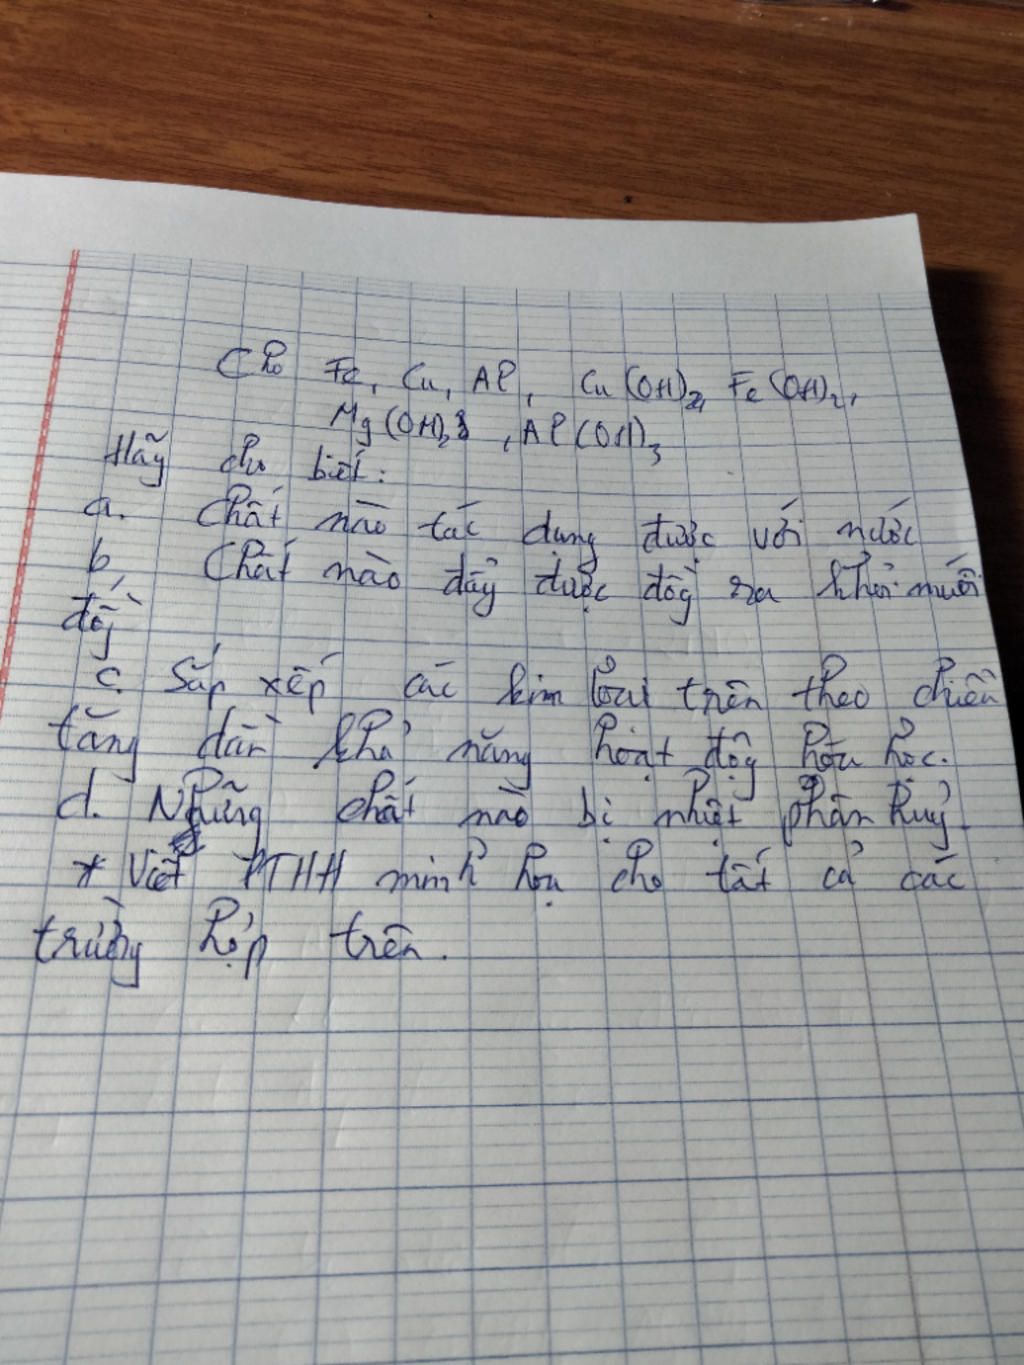 Cho Fe, Cu, Al, Cu(OH)2, Fe(OH)2,
Mg(OH)2, Al(OH)3
Hãy cho biết:
a. Chất nào tác dụng được với nước
b, Chất nào đẩy được đồng ra khỏi muối
đồng
c. Sắp xếp các kim loại trên theo chiều
tăng dần khả năng hoạt động hóa học.
d. Những chất nào bị nhiệt phân hủy
* Viết PTHH minh họa cho tất cả các
trường hợp trên.